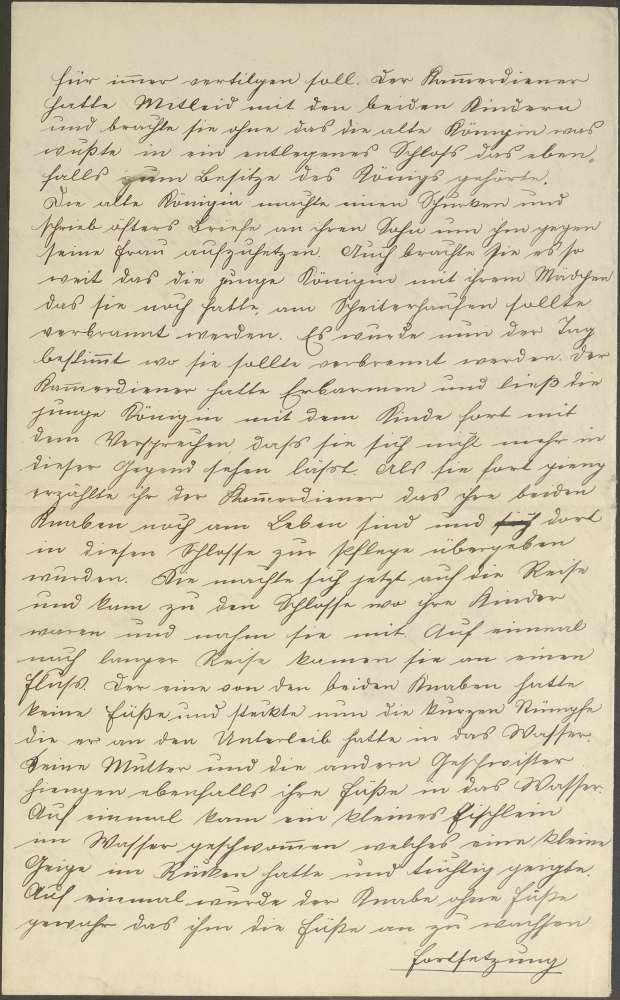 für im̄er vertilgen soll. Der Kam̄erdiener
hatte Mitleid mit den beiden Kindern
und brachte sie ohne das die alte Königin was
wußte in ein entlegenes Schloß das eben-
falls zum Besitze des Königs gehörte.
Die alte Königin machte einen Schurken und
schrieb öfters Briefe an ihren Sohn um ihn gegen
seine Frau aufzuhetzen. Auch brachte sie es so
weit das die junge Königin mit ihrem Mädchen
das sie noch hatte, am Scheiterhaufen sollte
verbrannt werden. Es wurde nun der Tag
bestim̄t wo sie sollte verbrennt werden. Der
Kam̄erdiener hatte Erbarmen und ließ die
junge Königin mit dem Kinde fort mit
dem Versprechen, dass sie sich nicht mehr in
dieser Gegend sehen lässt. Als sie fort gieng
erzählte ihr der Kam̄erdiener das ihre beiden
Knaben noch am Leben sind und dort
in diesen Schlosse zur Pflege übergeben
wurden. Sie machte sich jetzt auf die Reise
und kam zu den Schlosse wo ihre Kinder
waren und nahm sie mit. Auf einmal
nach langer Reise kamen sie an einen
Fluss. Der eine von den beiden Knaben hatte
keine Füße und steckte nun die kurzen Stümpfe
die er an den Unterleib hatte in das Wasser.
Seine Mutter und die andern Geschwister
hiengen ebenfalls ihre Füße in das Wasser.
Auf einmal kam ein kleines Fischlein
im Wasser geschwom̄en welches eine kleine
Geige im Rücken hatte und tüchtig geigte.
Auf einmal wurde der Knabe ohne Füße
gewahr das ihm die Füße an zu wachsen
Fortsetzung